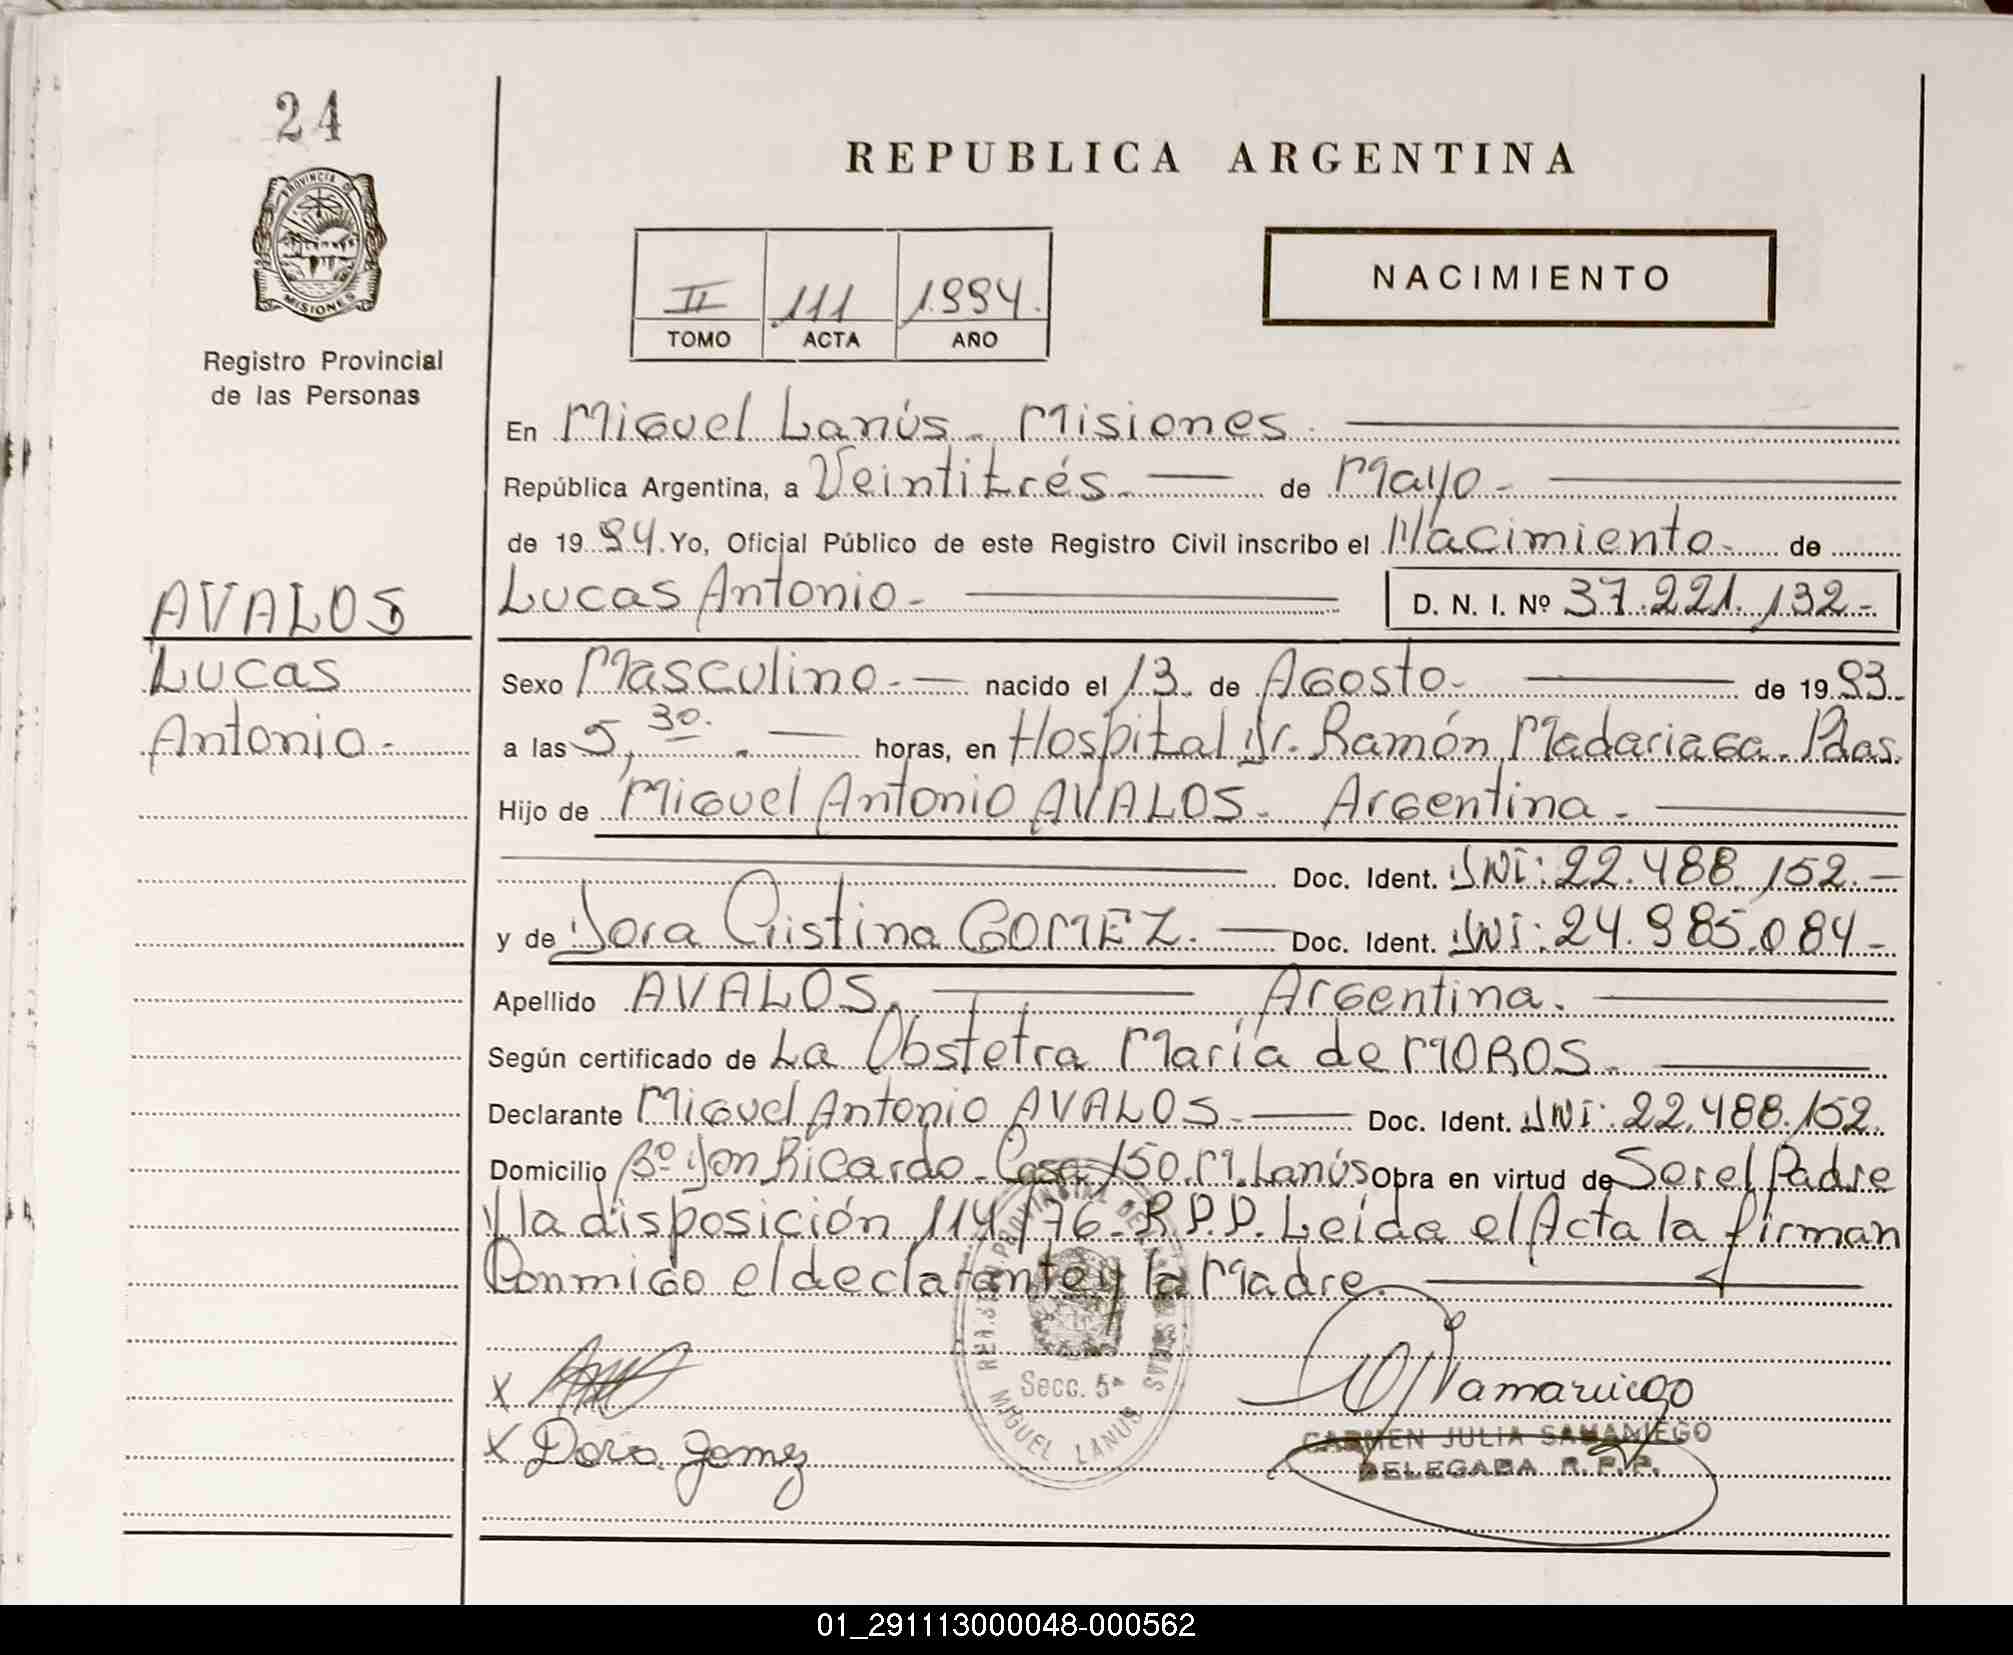 24
REPUBLICA ARGENTINA
PROVINCIA DE
MISIONES
Registro Provincial
de las Personas
II 111 1994.
TOMO ACTA AÑO
NACIMIENTO
En Miguel Lanús - Misiones.
República Argentina, a Veintitrés. de Mayo -
de 19 94. Yo, Oficial Público de este Registro Civil inscribo el Nacimiento. de
AVALOS
Lucas
Antonio -
Lucas Antonio - D. N. I. Nº 37.221.132-
Sexo Masculino. - nacido el 13. de Agosto - de 19 93.
a las 5,30. - horas, en Hospital Dr. Ramón Madariaga. Pdas.
Hijo de Miguel Antonio AVALOS. Argentina. -
Doc. Ident. DNI: 22.488.152. -
y de Dora Cristina GOMEZ. - Doc. Ident. DNI: 24.985.084 -
Apellido AVALOS. Argentina.
Según certificado de La Obstetra María de MOROS.
Declarante Miguel Antonio AVALOS. - Doc. Ident. DNI: 22.488.152.
Domicilio Bº Don Ricardo - Casa 150. M. Lanús Obra en virtud de Ser el Padre
y la disposición 114/76 - R.P.P. Leída el Acta la firman
Conmigo el declarante y la Madre.
X
X Dora Gomez
Secc. 5ª
MIGUEL LANUS
Samaniego
CARMEN JULIA SAMANIEGO
DELEGADA R.P.P.
01_291113000048-000562